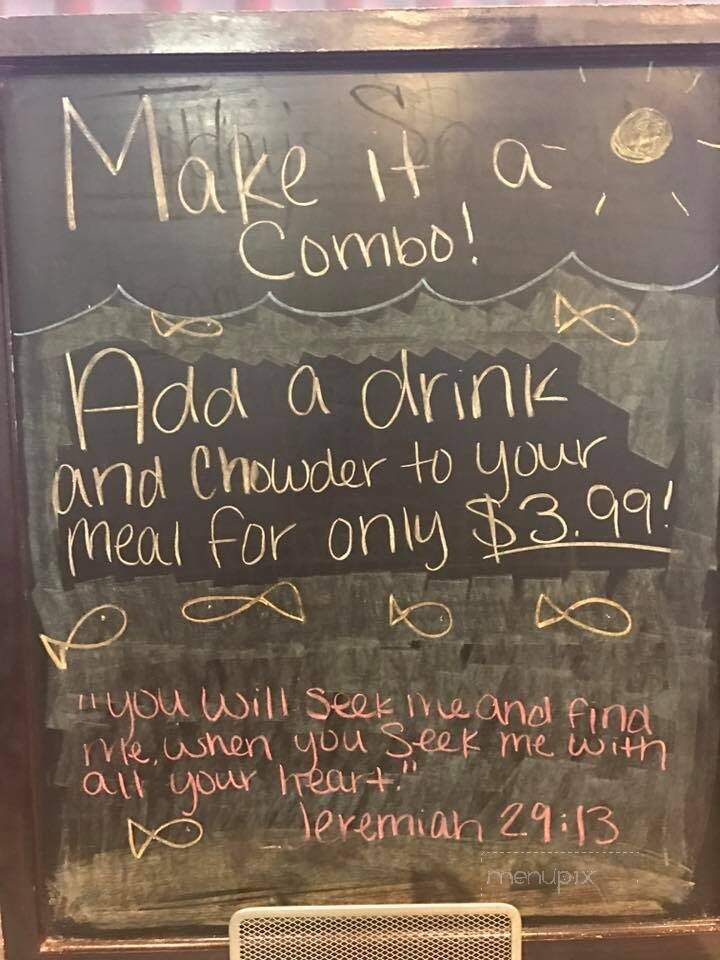 Make it a
Combo!
Add a drink
and Chowder to your
meal for only $3.99!
"you will seek me and find
me, when you seek me with
all your heart."
Jeremiah 29:13
menupix